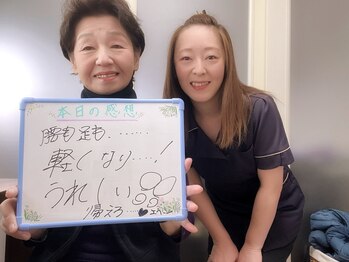 本日の感想
腰も足も........
軽くなり....!
うれしい
帰えろ...♥